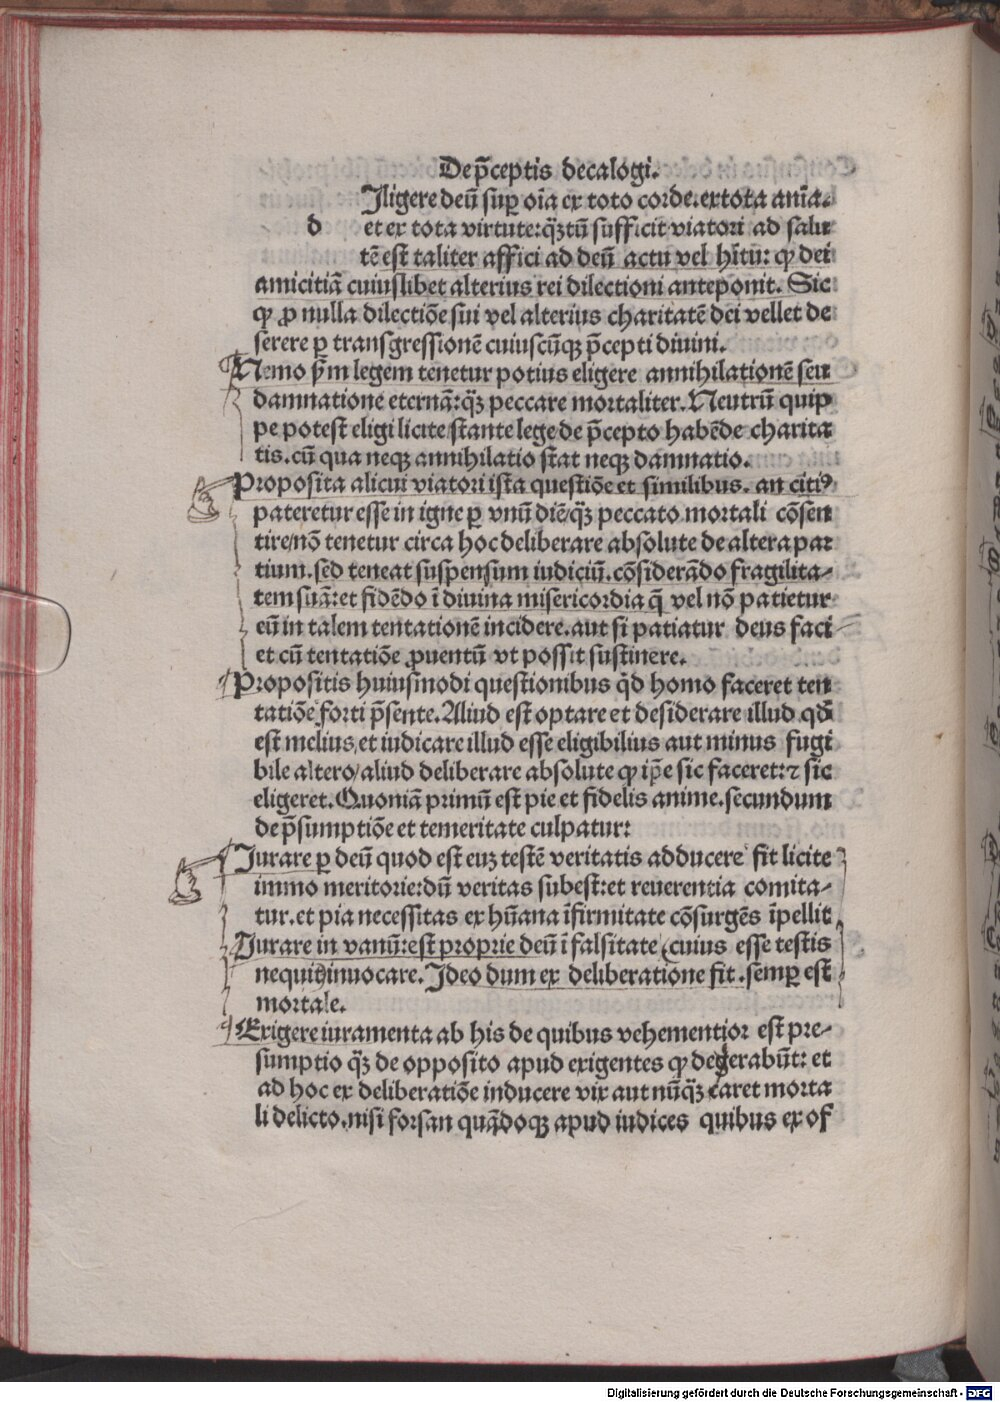 De p̄ceptis decalogi.
Iligere deū sup̱ oīa ex toto corde. ex tota anīa.
d et ex tota virtute: q̄ꝫtū sufficit viatori ad salu
tē est taliter affici ad deū actu vel hītu: ꝙ dei
amicitiā cuiuslibet alterius rei dilectioni anteponit. Sic
ꝙ ꝓ nulla dilectiōe sui vel alterius charitatē dei vellet de
serere ꝑ transgressionē cuiuscūqꝫ p̄cepti diuini.
Nemo ẜm legem tenetur potius eligere annihilationē seu
damnatione eternā: q̄ꝫ peccare mortaliter. Neutrū quip
pe potest eligi licite stante lege de p̄cepto habēde charita
tis. cū qua neqꝫ annihilatio stat neqꝫ damnatio.
Proposita alicui viatori ista questiōe et similibus. an citiꝰ
pateretur esse in igne ꝑ vnū diē/ q̄ꝫ peccato mortali cōsen
tire/ nō tenetur circa hoc deliberare absolute de altera par
tium. sed teneat suspensum iudiciū. cōsiderādo fragilita-
tem suā: et fidēdo ī diuina misericordia q̄ vel nō patietur
eū in talem tentationē incidere. aut si patiatur deus faci
et cū tentatiōe ꝓuentū vt possit sustinere.
Propositis huiusmodi questionibus q̄d homo faceret ten
tatiōe forti p̄sente. Aliud est optare et desiderare illud qd̄
est melius, et iudicare illud esse eligibilius aut minus fugi
bile altero/ aliud deliberare absolute ꝙ ip̄e sic faceret: ⁊ sic
eligeret. Quoniā primū est pie et fidelis anime. secundum
de p̄sumptiōe et temeritate culpatur:
Iurare ꝑ deū quod est euꝫ testē veritatis adducere fit licite
immo meritorie: dū veritas subest: et reuerentia comita-
tur. et pia necessitas ex hūana īfirmitate cōsurgēs īpellit
Iurare in vanū: est proprie deū ī falsitate cuius esse testis
nequit inuocare. Ideo dum ex deliberatione fit. semꝑ est
mortale.
Exigere iuramenta ab his de quibus vehementior est pre-
sumptio q̄ꝫ de opposito apud exigentes ꝙ degerabūt: et
ad hoc ex deliberatiōe inducere vix aut nūq̄ꝫ caret morta
li delicto. nisi forsan quādoqꝫ apud iudices quibus ex of
Digitalisierung gefördert durch die Deutsche Forschungsgemeinschaft - DFG